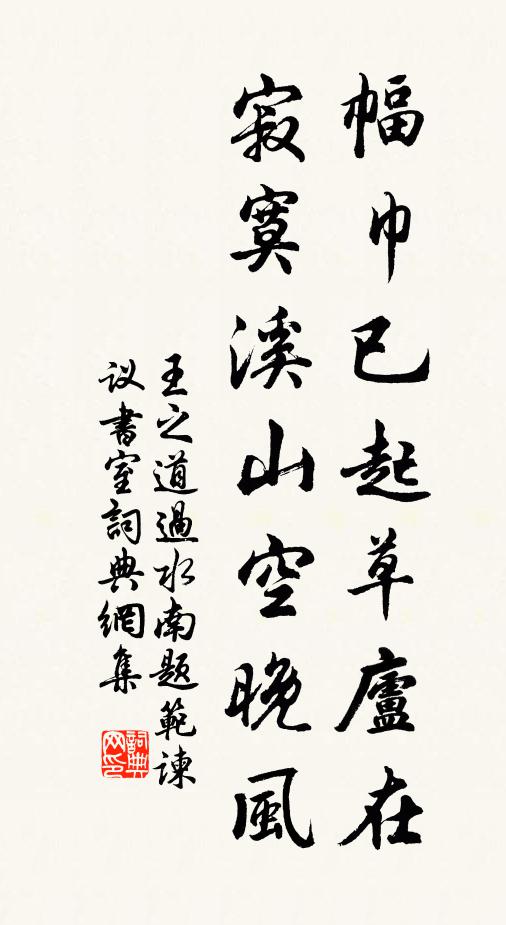 幅巾已起草廬在
寂寞溪山空晚風
王之道過水南題範諫
议書室詞典網集
詞典网印